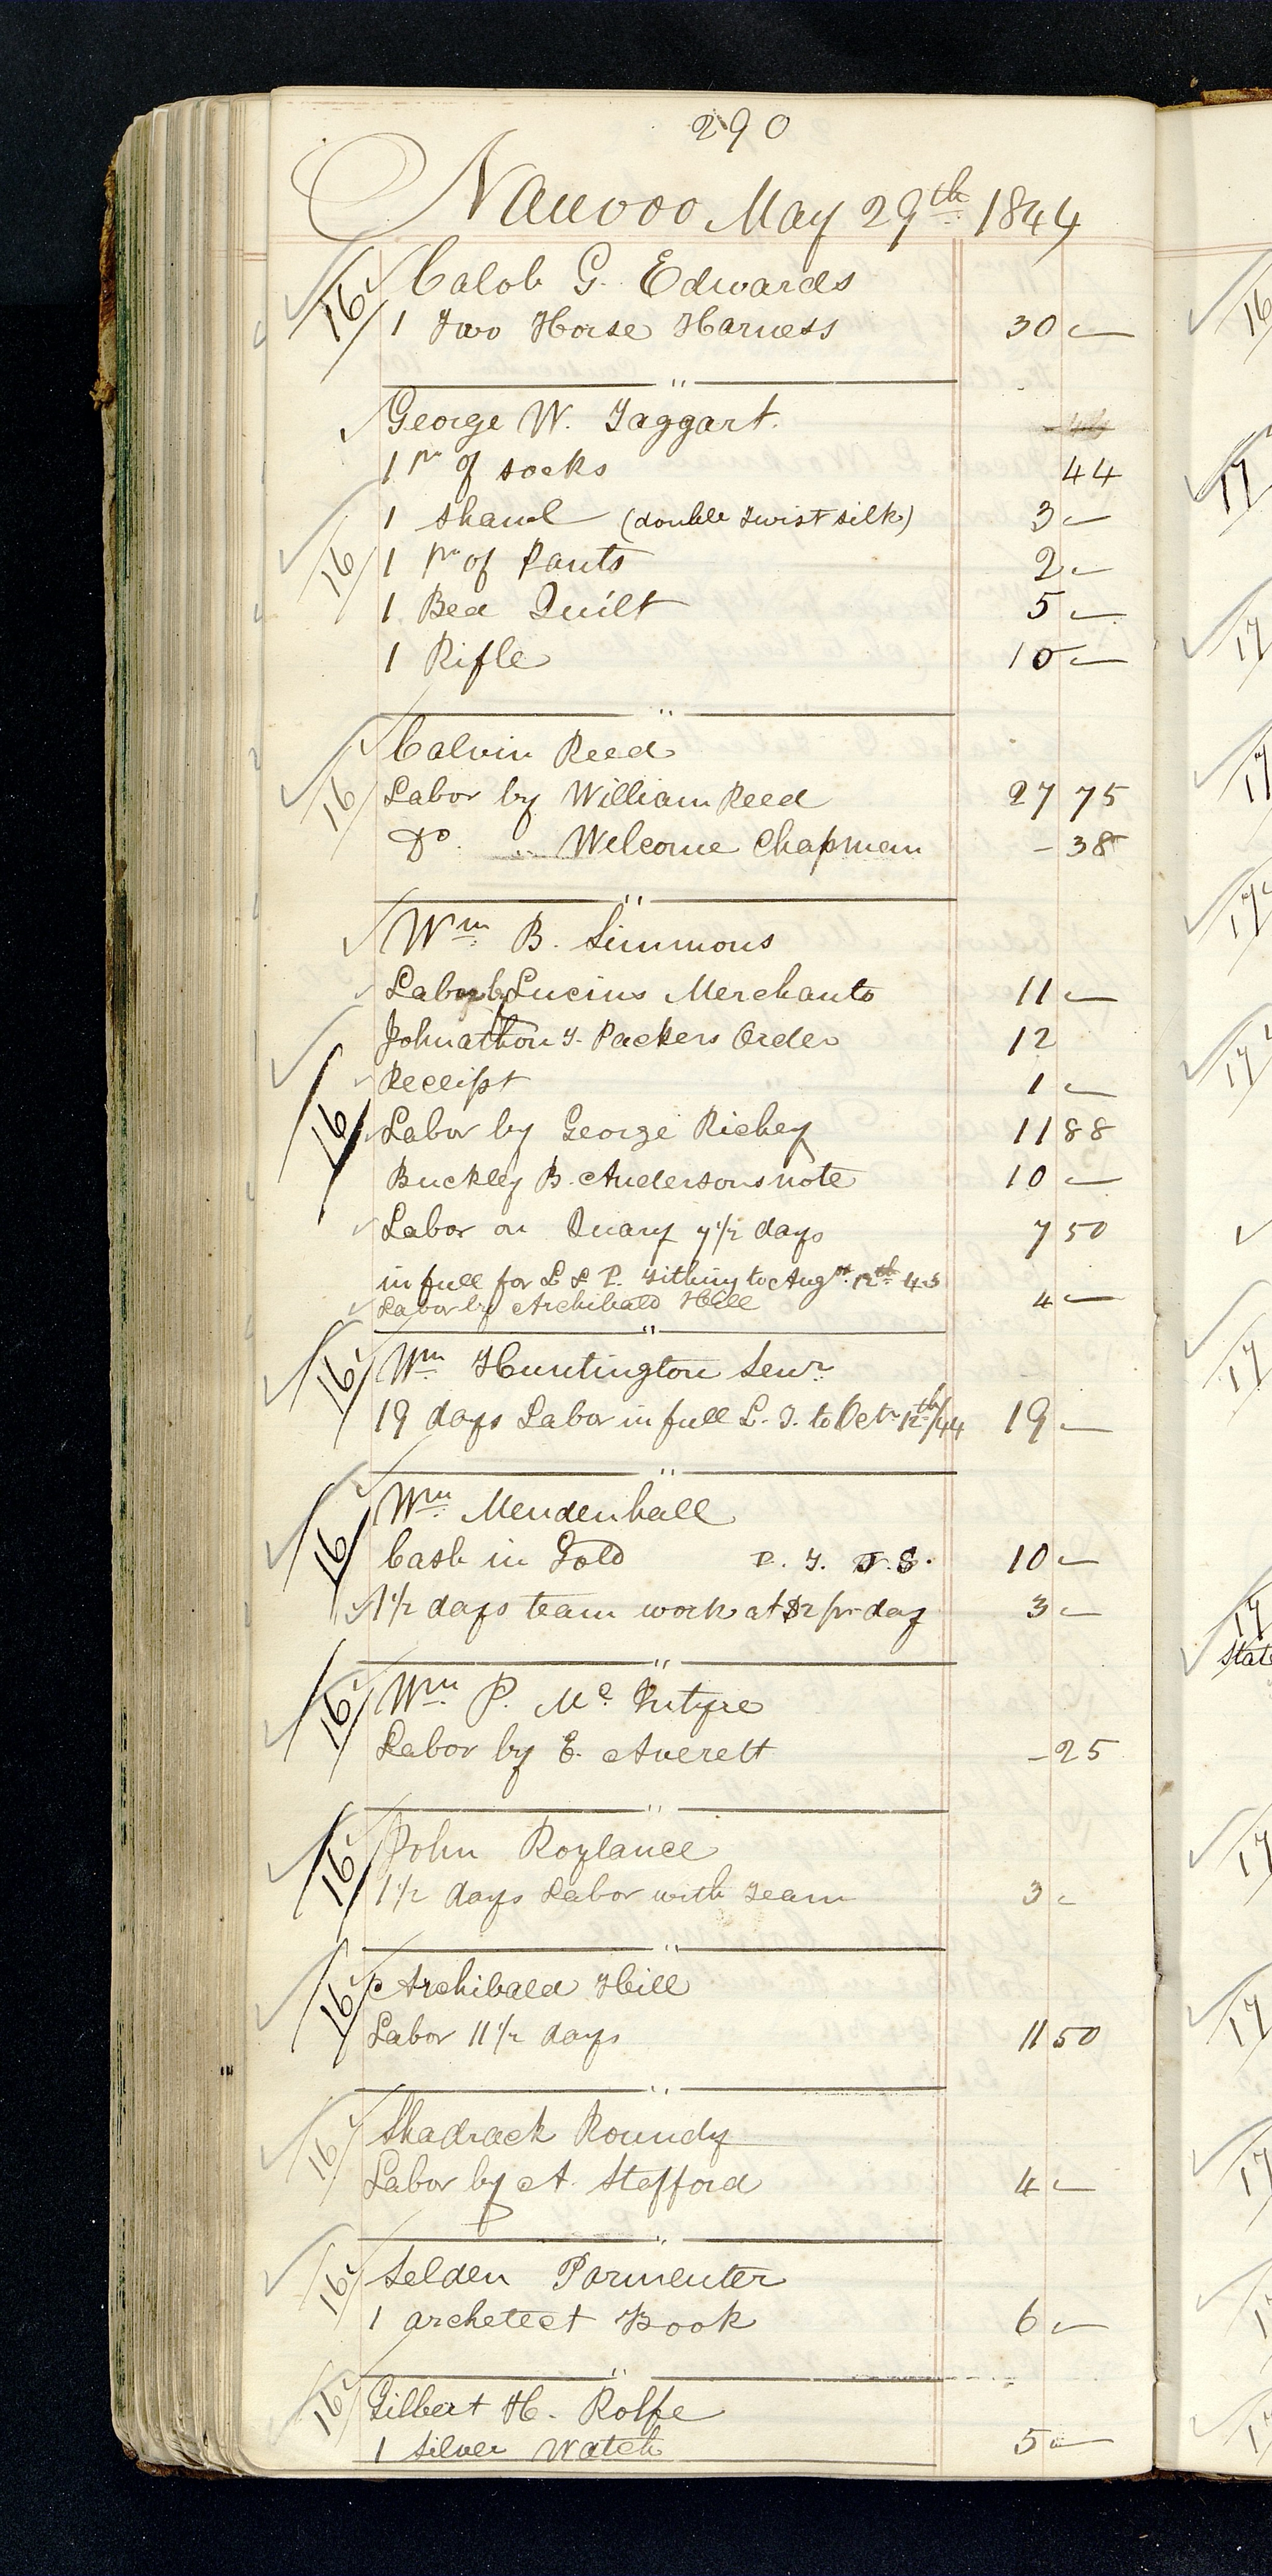 290
Nauvoo May 29th 1844
16 Calob G. Edwards
1 Two Horse Harness 30 —
"
George W. Taggart.
1 pr of socks 44
1 shawl (double twist silk) 3 —
16 1 pr of Pants 2 —
1 Bed Quilt 5 —
1 Rifle 10 —
"
Calvin Reed
16 Labor by William Reed 27 75
Do. " Welcome Chapman - 38
"
Wm B. Simmons
Labor by Lucius Merchants 11 —
Johnathon T. Packers Order 12
Receipt 1 —
16 Labor by George Richey 11 88
Buckley B. Andersons note 10 —
Labor on Quary 7 1/2 days 7 50
in full for L & P. Tithing to Augst 12th 45
Labor by Archibald Hill 4 —
"
16 Wm Huntington Senr
19 days Labor in full L. T. to Octr 12th/44 19 —
"
Wm Mendenhall
16 Cash in Gold P. T. J. S. 10 —
1 1/2 days team work at $2 pr day 3 —
"
16 Wm P. Mc Intyre
Labor by E. Averett - 25
"
16 John Roylance
1 1/2 days Labor with Team 3 -
"
16 Archibald Hill
Labor 11 1/2 days 11 50
"
16 Shadrack Roundy
Labor by A. Stafford 4 —
"
16 Selden Parmenter
1 archetect Book 6 —
"
16 Gilbert H. Rolfe
1 Silver Watch 5 —
16
17
17
17
17
17
17
17
State
17
17
17
17
17